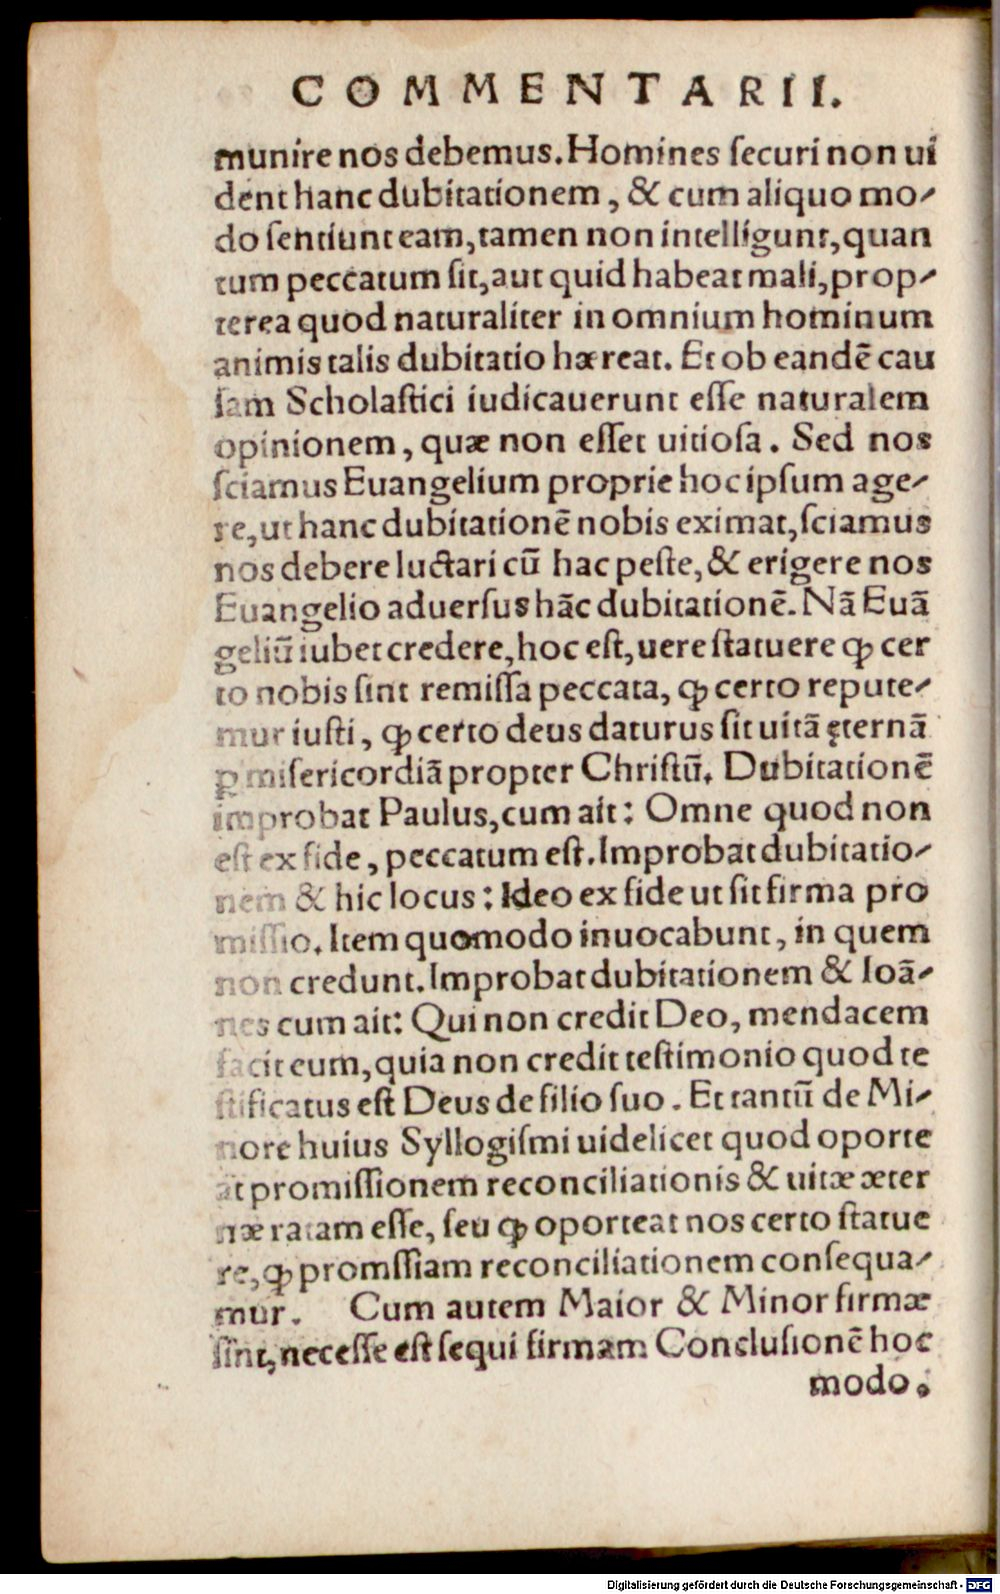 COMMENTARII.
munire nos debemus. Homines ſecuri non ui
dent hanc dubitationem, & cum aliquo mo-
do ſentiunt eam, tamen non intelligunt, quan
tum peccatum ſit, aut quid habeat mali, prop-
terea quod naturaliter in omnium hominum
animis talis dubitatio hæreat. Et ob eandē cau
ſam Scholaſtici iudicauerunt eſſe naturalem
opinionem, quæ non eſſet uitioſa. Sed nos
ſciamus Euangelium proprie hoc ipſum age-
re, ut hanc dubitationē nobis eximat, ſciamus
nos debere luctari cū hac peſte, & erigere nos
Euangelio aduerſus hāc dubitationē. Nā Euā
geliū iubet credere, hoc eſt, uere ſtatuere ꝙ cer
to nobis ſint remiſſa peccata, ꝙ certo repute-
mur iuſti, ꝙ certo deus daturus ſit uitā ęternā
ꝑ miſericordiā propter Chriſtū. Dubitationē
improbat Paulus, cum ait: Omne quod non
eſt ex fide, peccatum eſt. Improbat dubitatio-
nem & hic locus: Ideo ex fide ut ſit firma pro
miſſio. Item quomodo inuocabunt, in quem
non credunt. Improbat dubitationem & Ioā-
nes cum ait: Qui non credit Deo, mendacem
facit eum, quia non credit teſtimonio quod te
ſtificatus eſt Deus de filio ſuo. Et tantū de Mi-
nore huius Syllogiſmi uidelicet quod oporte
at promiſſionem reconciliationis & uitæ æter
næ ratam eſſe, ſeu ꝙ oporteat nos certo ſtatue
re, ꝙ promſſiam reconciliationem conſequa-
mur. Cum autem Maior & Minor firmæ
ſint, neceſſe eſt ſequi firmam Concluſionē hoc
modo.
Digitalisierung gefördert durch die Deutsche Forschungsgemeinschaft - DFG